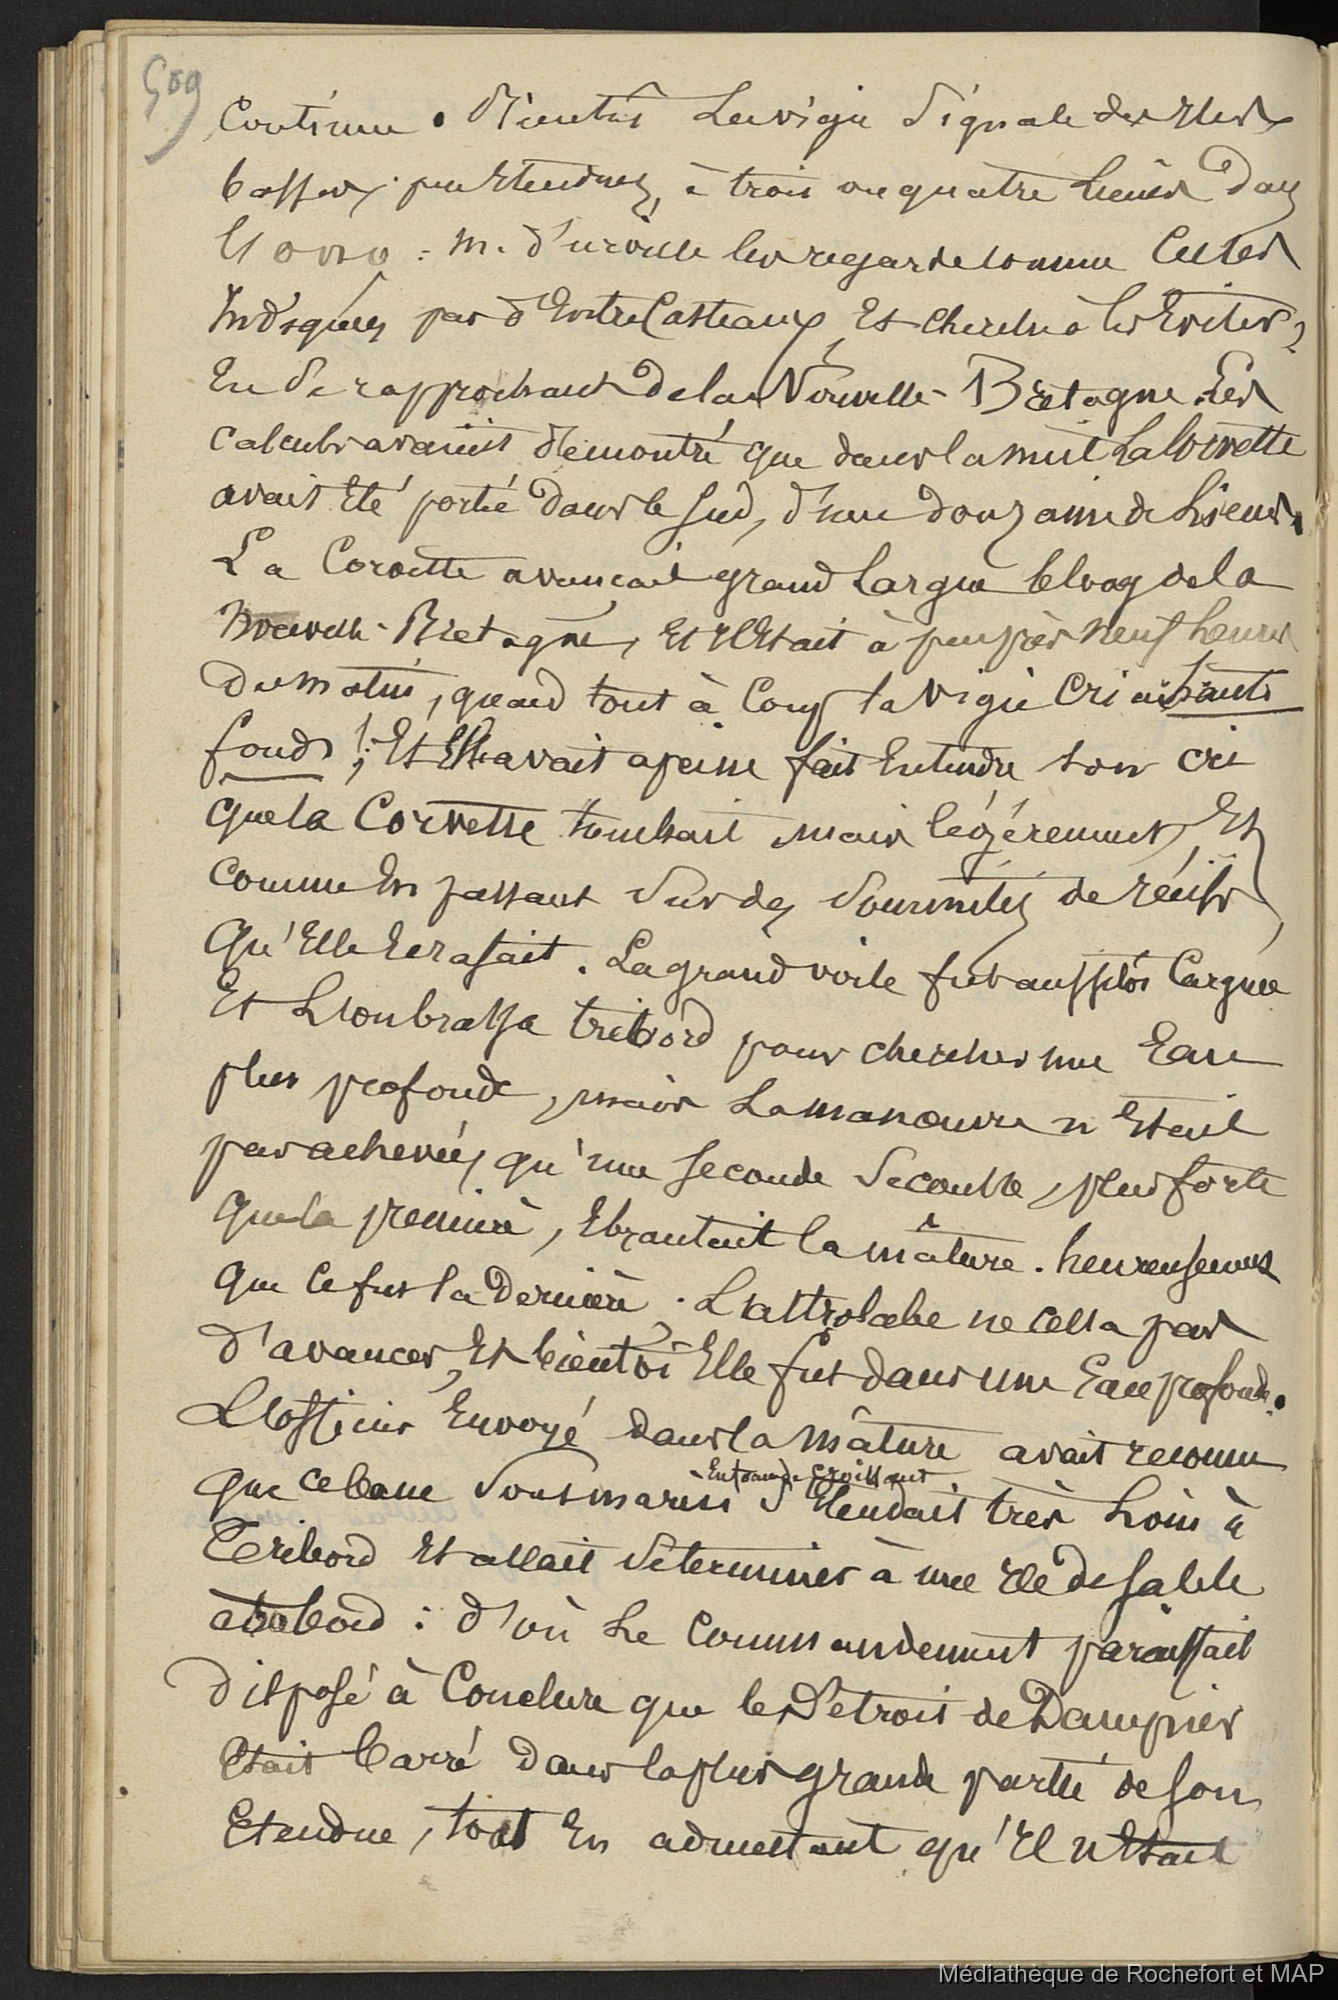 509
Continu. Bientôt La vigie Signale des Iles
basses, peu Etendues, à trois ou quatre lieues dans
l'ono : M. d'urville les regarde comme Celles
Indiquées par d'EntreCasteaux, Et cherche à les Eviter,
En Se rapprochant de la Nouvelle-Bretagne. Les
Calculs avaient démontré que dans la nuit La Corvette
avait Eté portée dans le Sud, d'une douzaine de Lieues.
La Corvette avançait grand Largue le long de la
Nouvelle-Bretagne, Et Il Etait à peu près neuf heures
du matin, quand tout à Coup la Vigie Cria hauts
fonds !; Et Elle avait a peine fait Entendre son cri
que la Corvette touchait, mais légèrement, Et
Comme En passant Sur des Sommités de récifs
Qu'Elle Ecrasait. La grand voile fut aussitôt Carguée
Et L'on brassa tribord pour chercher une Eau
plus profonde, mais La manœuvre n'Etait
pas achevée, qu'une Seconde Secousse, plus forte
que la première, Ebranlait la mâture. heureusement
que Ce fut la dernière. L'astrolabe ne cessa pas
d'avancer, Et bientôt Elle fut dans une Eau profonde.
L'officier Envoyé dans la Mâture avait reconnu
En forme de croissant
que ce banc Sous marin S'Etendait très Loin à
Tribord Et allait Se terminer à une Ile de Sable
à babord : d'où Le Commandement paraissait
disposé à Conclure que le Détroit de Dampier
Etait barré dans la plus grande partie de son
Etendue, tout En admettant qu'Il n'Etait
Médiathèque de Rochefort et MAP